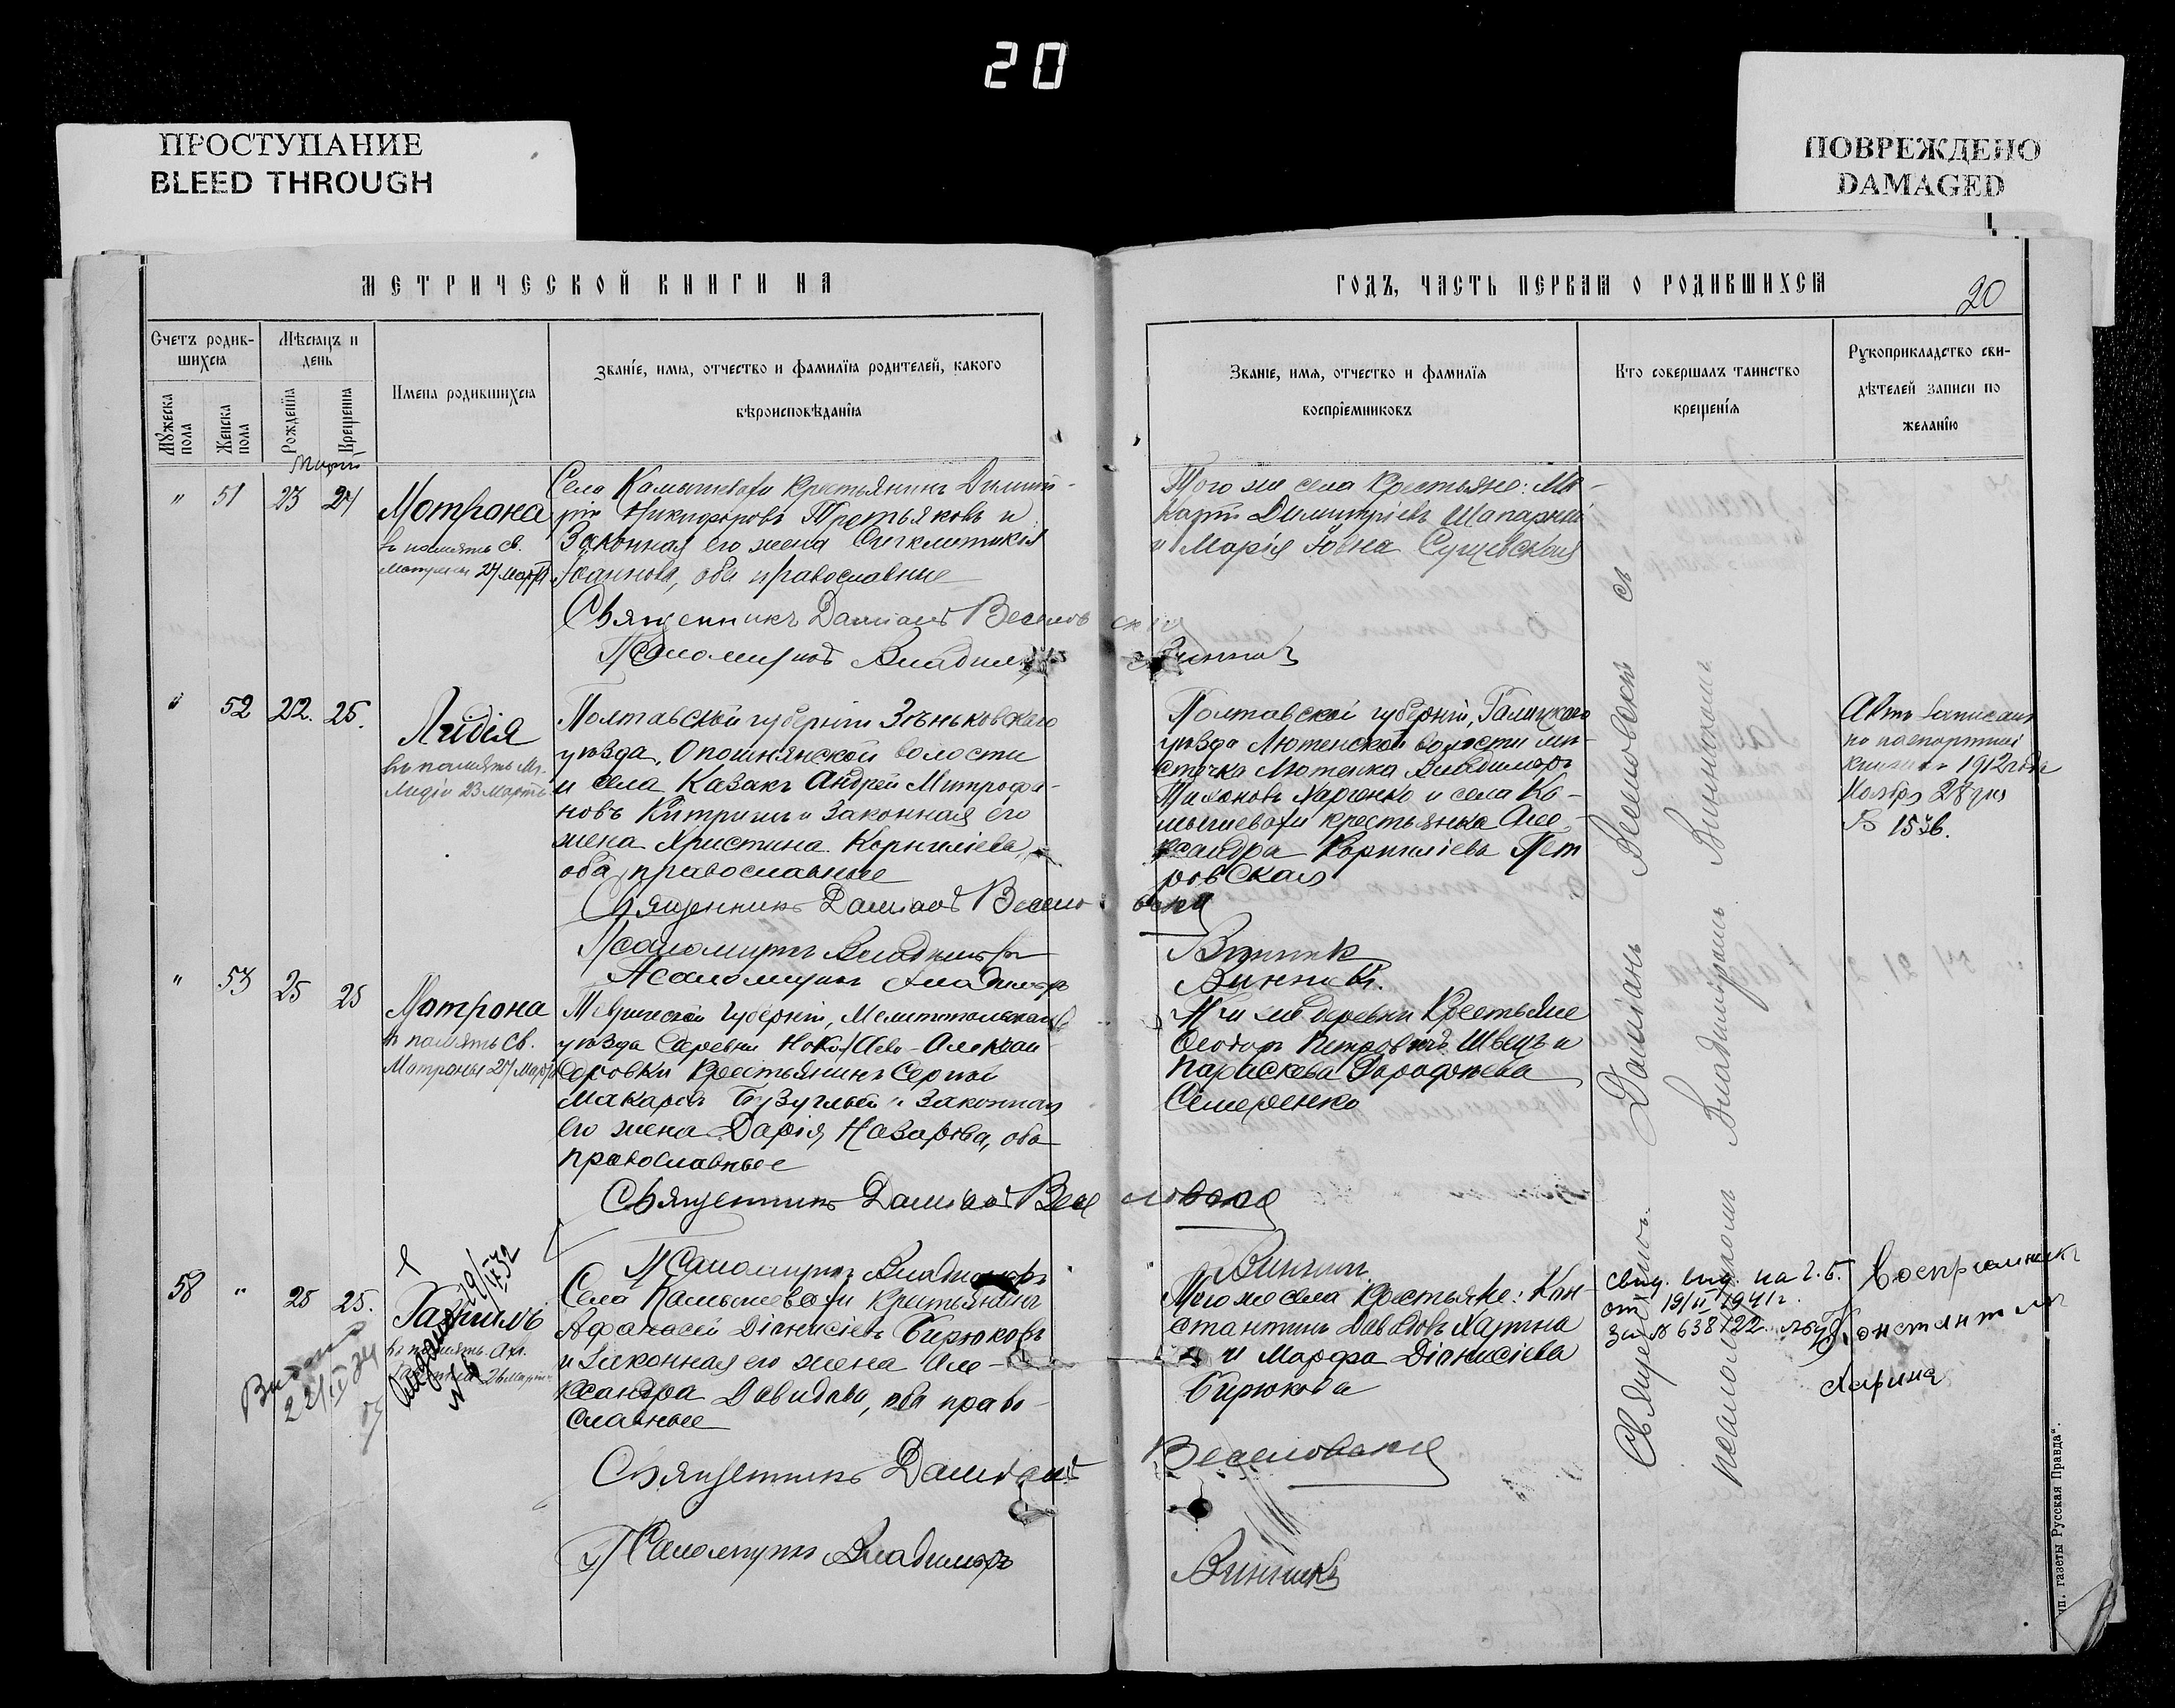 20
ПРОСТУПАНИЕ
BLEED THROUGH
ПОВРЕЖДЕНО
DAMAGED
МЕТРИЧЕСКОЙ КНИГИ НА
ГОДЪ, ЧАСТЬ ПЕРВАЯ О РОДИВШИХСЯ
20
Счетъ родив-
шихся
Мужеска пола
Женска пола
Мѣсяцъ и
день
Рожденія
Крещенія
Имена родившихся
Званіе, имя, отчество и фамилія родителей, какого
вѣроисповѣданія
Званіе, имя, отчество и фамилія
воспріемниковъ
Кто совершалъ таинство
крещенія
Рукоприкладство сви-
дѣтелей записи по
желанію
Мартъ
" 51 23 24
Мотрона
въ память св.
27 Марта
Села Камышевахи крестьянинъ Димит-
рій Никифоровъ Третьяковъ и
Законная его жена Синклитикія
Іоаннова, оба православные
Священникъ Даміанъ Веселовскій
Псаломщикъ Владиміръ Винникъ
Того же села крестьяне: Ма-
каръ Димитріевъ Шапарный
и Марія Іовна Сущевская
" 52 22. 25.
Лидія
въ память Мч.
Лидіи 23 Марта
Полтавской губерніи Зѣньковскаго
уѣзда, Опошнянской волости
и села Казакъ Андрей Митрофа-
новъ и Законная его
жена Христина Корниліева,
оба православные
Священникъ Даміанъ Веселовскій
Псаломщикъ Владиміръ Винникъ
Полтавской губерніи, Гадячскаго
уѣзда Лютенской волости мѣ-
стечка Лютенка Владиміръ
Харченко и села Ка-
мышевахи крестьянка Але-
ксандра Корниліева Пет
ровская
Актъ записанъ
по паспортной
книжкѣ 1912 года
Ноября 28 дня
№ 1536.
" 53 25 25
Псаломщикъ Владиміръ
Винникъ.
Мотрона
въ память св.
Мотроны 27 Марта
Таврической Губерніи, Мелитопольскаго
уѣзда деревни Алексан
дровки Крестьянинъ Сергій
Макаровъ Бузуглый и законная
его жена Дарія Назарова, оба
православные
Священникъ Даміанъ Веселовскій
Псаломщикъ Владиміръ Винникъ
деревни Крестьяне
Ѳеодоръ Петровичъ Швецъ и
Параскева Дороѳеева
Семеренко
58 " 25 25.
Гавріилъ
въ память Арх.
26 Марта
19/II 32
Выдано
22/II 34
Села Камышевахи Крестьянинъ
Афанасій Діонисіевъ Бирюковъ
и Законная его жена Але-
ксандра Давидова, оба право-
славные
Священникъ Даміанъ Веселовскій
Псаломщикъ Владиміръ Винникъ
Того же села Крестьяне: Кон-
стантинъ Давидовъ Харина
и Марфа Діонисіева
Бирюкова
Священникъ Даміанъ Веселовскій съ
псаломщикомъ Владиміромъ Винникомъ
от 19/II 1941 г.
за № 638122
Воспріемникъ
Константинъ
Харина
газеты Русская Правда".